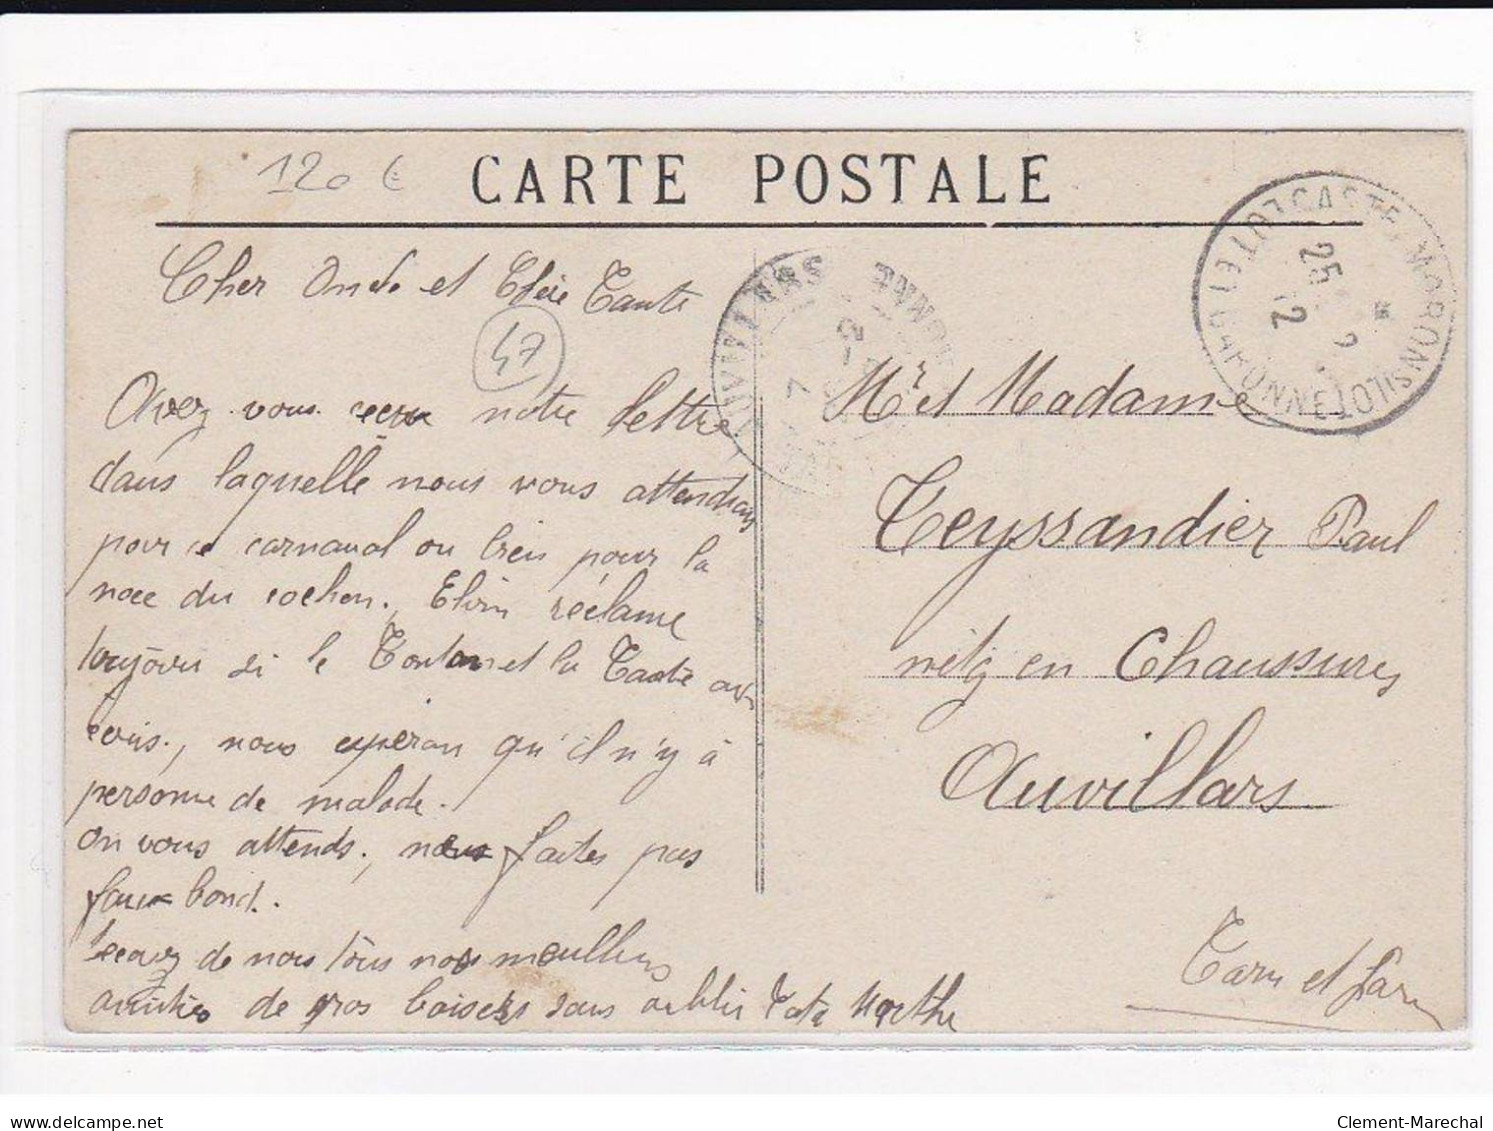 120 €
CARTE POSTALE
CASTELMORON SUR LOT LOT ET GARONNE
25 2 12
AUVILLARS
47
Cher Oncle et Chère Tante
Avez vous reçu notre lettre
dans laquelle nous vous attendions
pour ce carnaval ou bien pour la
noce du cochon., réclame
toujours si le Tonton et la Tante
nous esperon qu'il n'y à
personne de malade.
On vous attends., nous faites pas
faux bond.
Recevez de nous tous nos meilleurs
amitiés de gros baisers sans oublier Marthe
Mr et Madame
Teyssandier Paul
négt en Chaussures
Auvillars
Tarn et Garn
www.delcampe.net
Clement-Marechal